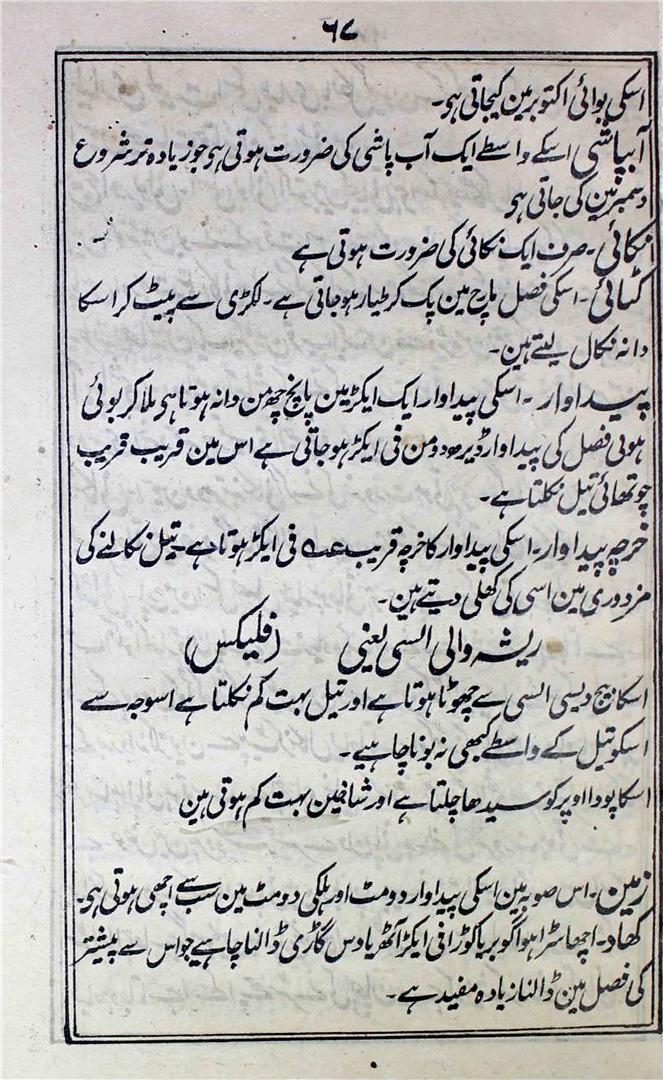 ۶۷
اسکی بوائی اکتوبر مین کیجاتی ہو۔
آبپاشی اسکے واسطے ایک آب پاشی کی ضرورت ہوتی ہو جو زیادہ تر شروع
دسمبر مین کی جاتی ہو
نکائی۔ صرف ایک نکائی کی ضرورت ہوتی ہے
کٹائی۔ اسکی فصل مارچ مین پک کر طیار ہو جاتی ہے۔ لکڑی سے پیٹ کر اسکا
دانہ نکال لیتے ہین۔
پیداوار۔ اسکی پیداوار ایک ایکڑ مین پانچ چھ من دانہ ہوتا ہو ملا کر بوئی
ہوئی فصل کی پیداوار ڈیڑھ دو من فی ایکڑ ہو جاتی ہے اس مین قریب قریب
چوتھائی تیل نکلتا ہے۔
خرچہ پیداوار۔ اسکی پیداوار کا خرچہ قریب فی ایکڑ ہوتا ہے۔ تیل نکالنے کی
مزدوری مین اسی کی کھلی دیتے ہین۔
ریشہ والی السی یعنی (فلیکس)
اسکا بیج دیسی السی سے چھوٹا ہوتا ہے اور تیل بہت کم نکلتا ہے اسوجہ سے
اسکو تیل کے واسطے کبھی نہ بونا چاہیے۔
اسکا پودا اوپر کو سیدھا چلتا ہے اور شاخین بہت کم ہوتی ہین
زمین۔ اس صوبہ مین اسکی پیداوار دومٹ اور ہلکی دومٹ مین سب سے اچھی ہوتی ہو۔
کھاد۔ اچھا سڑا ہوا گوبر یا کوڑا فی ایکڑ آٹھ یا دس گاڑی ڈالنا چاہیے جو اس سے پیشتر
کی فصل مین ڈالنا زیادہ مفید ہے۔